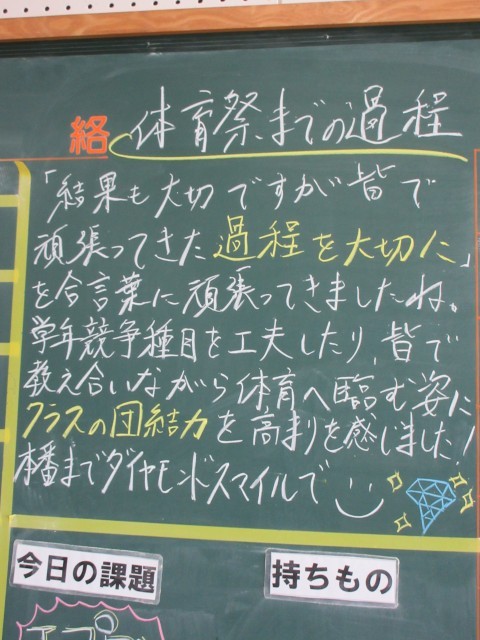 絡 体育祭までの過程
「結果も大切ですが皆で
頑張ってきた過程を大切に」
を合言葉に頑張ってきましたね。
学年競争種目を工夫したり、皆で
教え合いながら体育へ臨む姿に
クラスの団結力を高まりを感じました!
本番までダイヤモンドスマイルで
今日の課題
持ちもの